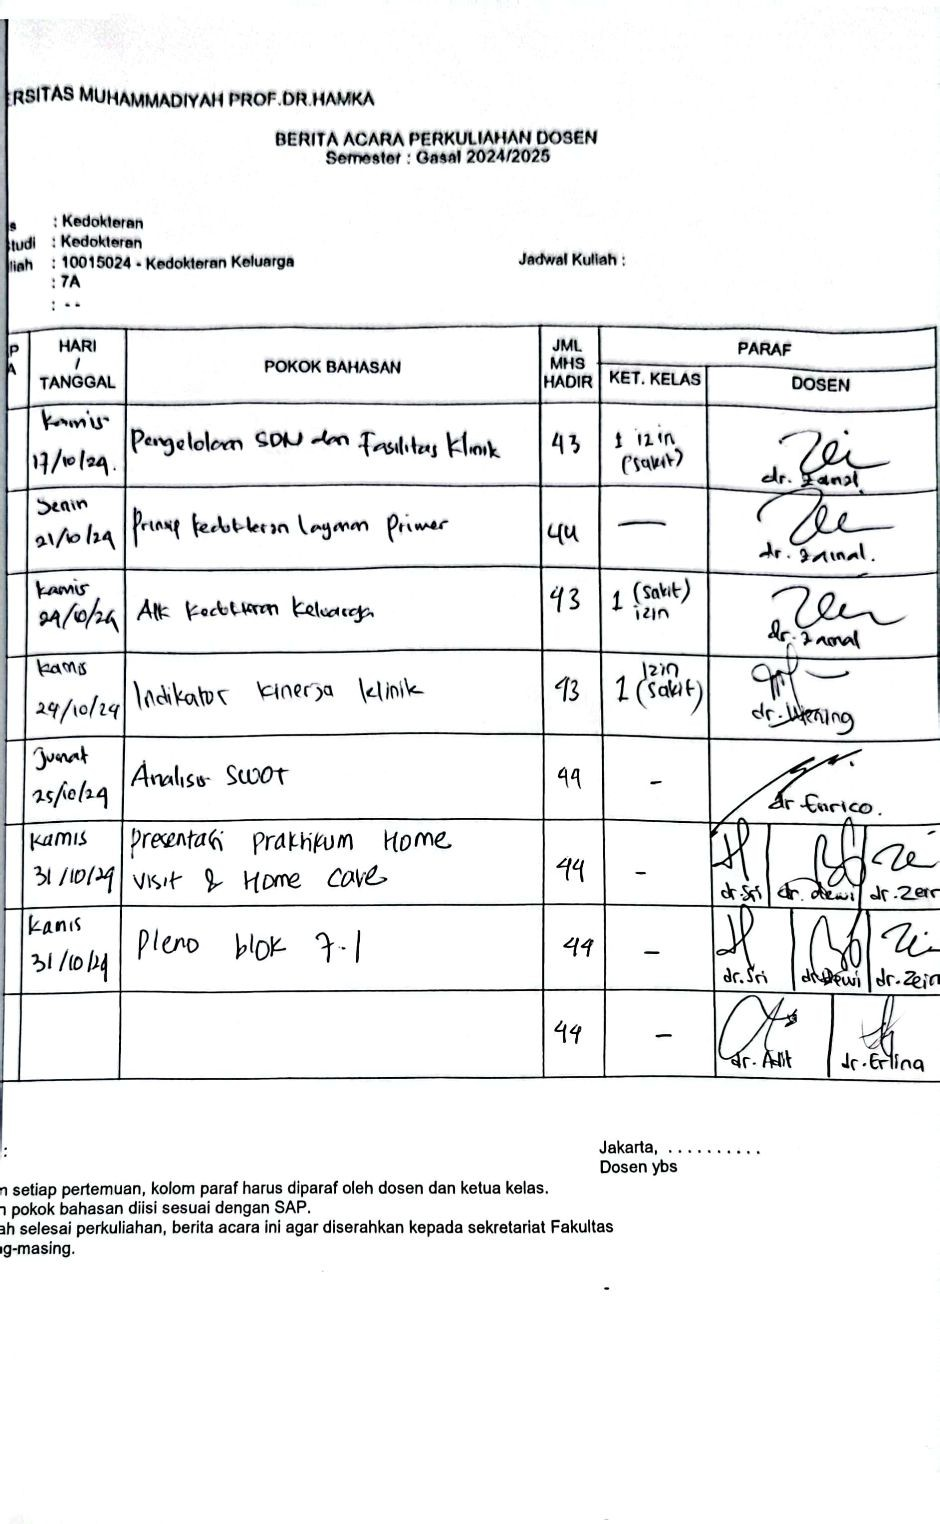 ERSITAS MUHAMMADIYAH PROF.DR.HAMKA
BERITA ACARA PERKULIAHAN DOSEN
Semester : Gasal 2024/2025
s : Kedokteran
tudi : Kedokteran
liah : 10015024 - Kedokteran Keluarga
Jadwal Kuliah :
: 7A
: --
P
A
HARI
/
TANGGAL
POKOK BAHASAN
JML
MHS
HADIR
PARAF
KET. KELAS
DOSEN
Kamis
17/10/24.
Pengelolaan SDM dan Fasilitas Klinik
43
1 izin
(sakit)
dr. Zainal
Senin
21/10/24
Prinsip kedokteran layanan Primer
44
—
dr. Zainal.
Kamis
24/10/24
kedokteran keluarga
43
1 (sakit)
izin
dr. Zainal
Kamis
24/10/24
Indikator kinerja klinik
43
1 izin
(sakit)
dr. Wening
Jumat
25/10/24
Analisis SWOT
44
-
dr Enrico.
Kamis
31/10/24
Presentasi Praktikum Home
visit & Home Care
44
-
dr.Sri
dr. Dewi
dr.Zein
Kamis
31/10/24
Pleno blok 7.1
44
-
dr.Sri
dr.Dewi
dr.Zein
44
-
dr. Adit
dr.Erlina
:
Jakarta, ..........
Dosen ybs
n setiap pertemuan, kolom paraf harus diparaf oleh dosen dan ketua kelas.
n pokok bahasan diisi sesuai dengan SAP.
ah selesai perkuliahan, berita acara ini agar diserahkan kepada sekretariat Fakultas
g-masing.